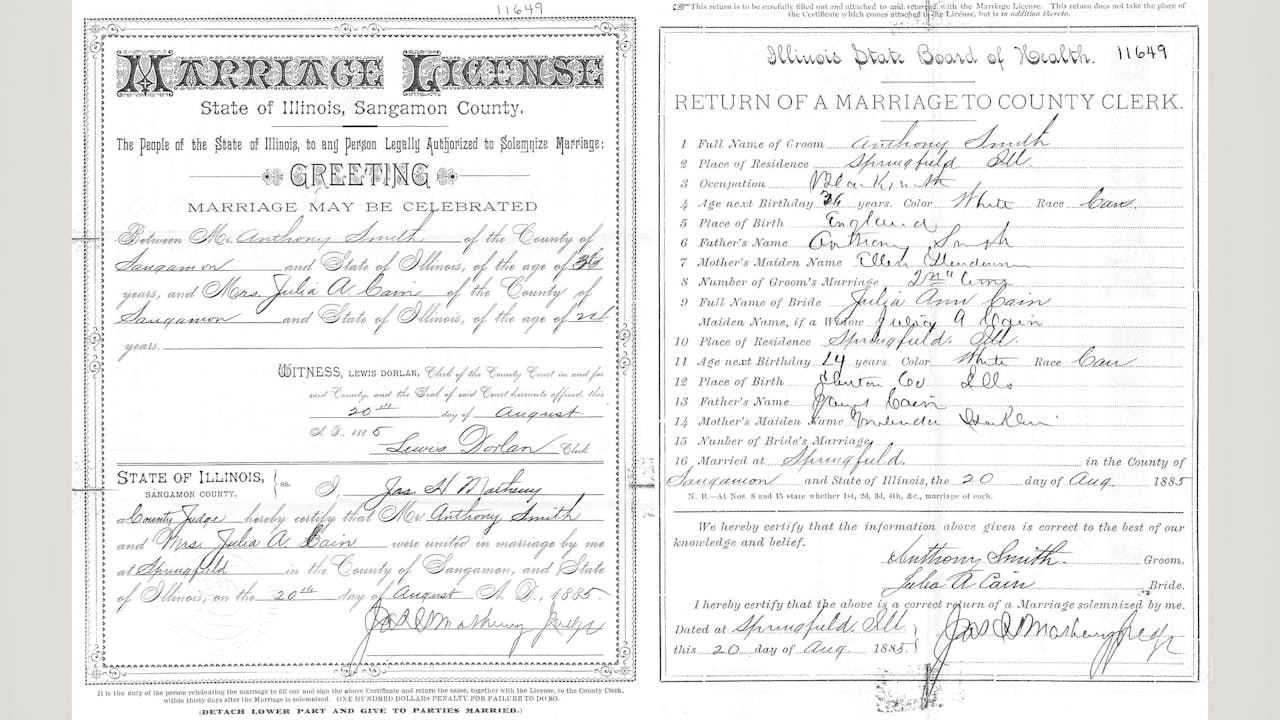 11649
MARRIAGE LICENSE
State of Illinois, Sangamon County.
The People of the State of Illinois, to any Person Legally Authorized to Solemnize Marriage:
GREETING
MARRIAGE MAY BE CELEBRATED
Between Mr. Anthony Smith of the County of
Sangamon and State of Illinois, of the age of
years, and Mrs. Julia A. Cain of the County of
Sangamon and State of Illinois, of the age of
years.
WITNESS, LEWIS DORLAN, Clerk of the County Court in and for
said County, and the Seal of said Court hereunto affixed, this
20th day of August
A. D. 1885
Lewis Dorlan Clerk
STATE OF ILLINOIS,
SANGAMON COUNTY.
ss.
I, Jas. H Matheny
a County Judge hereby certify that Mr. Anthony Smith
and Mrs. Julia A. Cain were united in marriage by me
at Springfield in the County of Sangamon, and State
of Illinois, on the 20th day of August A. D., 1885
Jas H Matheny Judge
It is the duty of the person celebrating the marriage to fill out and sign the above Certificate and return the same, together with the License, to the County Clerk,
within thirty days after the Marriage is solemnized. ONE HUNDRED DOLLARS PENALTY FOR FAILURE TO DO SO.
(DETACH LOWER PART AND GIVE TO PARTIES MARRIED.)
This return is to be carefully filled out and attached to and returned with the Marriage License. This return does not take the place of
the Certificate which comes attached to the License, but is in addition thereto.
Illinois State Board of Health. 11649
RETURN OF A MARRIAGE TO COUNTY CLERK.
1 Full Name of Groom Anthony Smith
2 Place of Residence Springfield Ill
3 Occupation Blacksmith
4 Age next Birthday years. Color White Race Cau.
5 Place of Birth England
6 Father's Name Anthony Smith
7 Mother's Maiden Name Ellen
8 Number of Groom's Marriage 2nd
9 Full Name of Bride Julia Ann Cain
Maiden Name, if a Widow Julia A Cain
10 Place of Residence Springfield. Ill.
11 Age next Birthday years. Color White Race Cau
12 Place of Birth Co Ills
13 Father's Name Cain
14 Mother's Maiden Name
15 Number of Bride's Marriage
16 Married at Springfield. in the County of
Sangamon and State of Illinois, the 20 day of Aug. 1885
N. B.—At Nos. 8 and 15 state whether 1st, 2d, 3d, 4th, &c., marriage of each.
We hereby certify that the information above given is correct to the best of our
knowledge and belief.
Anthony Smith. Groom.
Julia A Cain Bride.
I hereby certify that the above is a correct return of a Marriage solemnized by me.
Dated at Springfield. Ill
this 20 day of Aug 1885
Jas H Matheny Judge